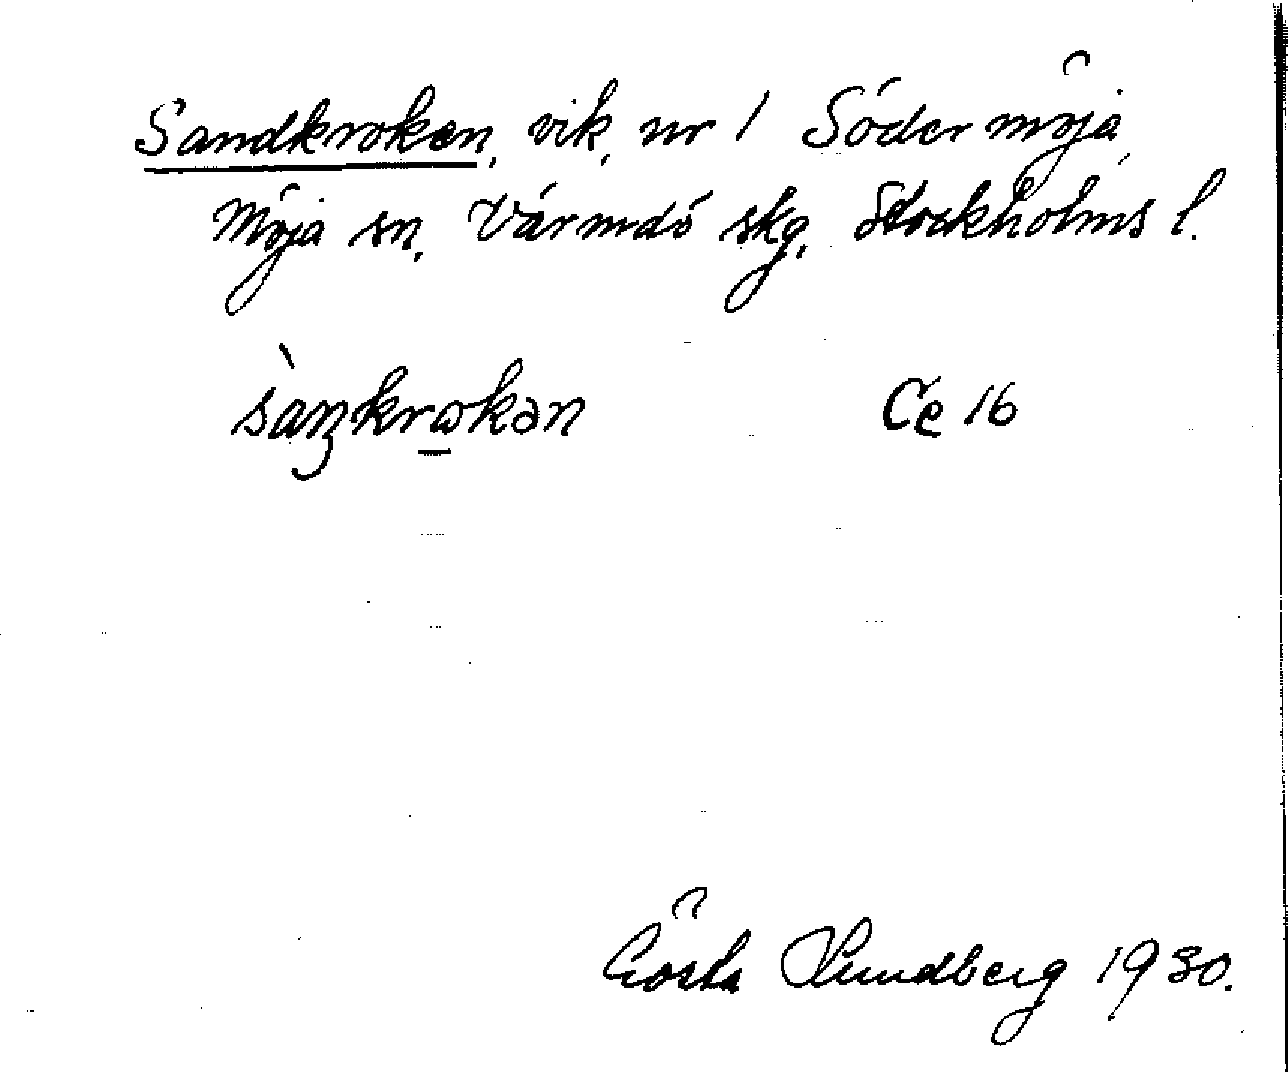 Sandkroken, vik, nr 1 Södermöja,
Möja sn, Värmdö skg, Stockholms l.
Ce 16
Gösta Lundberg 1930.